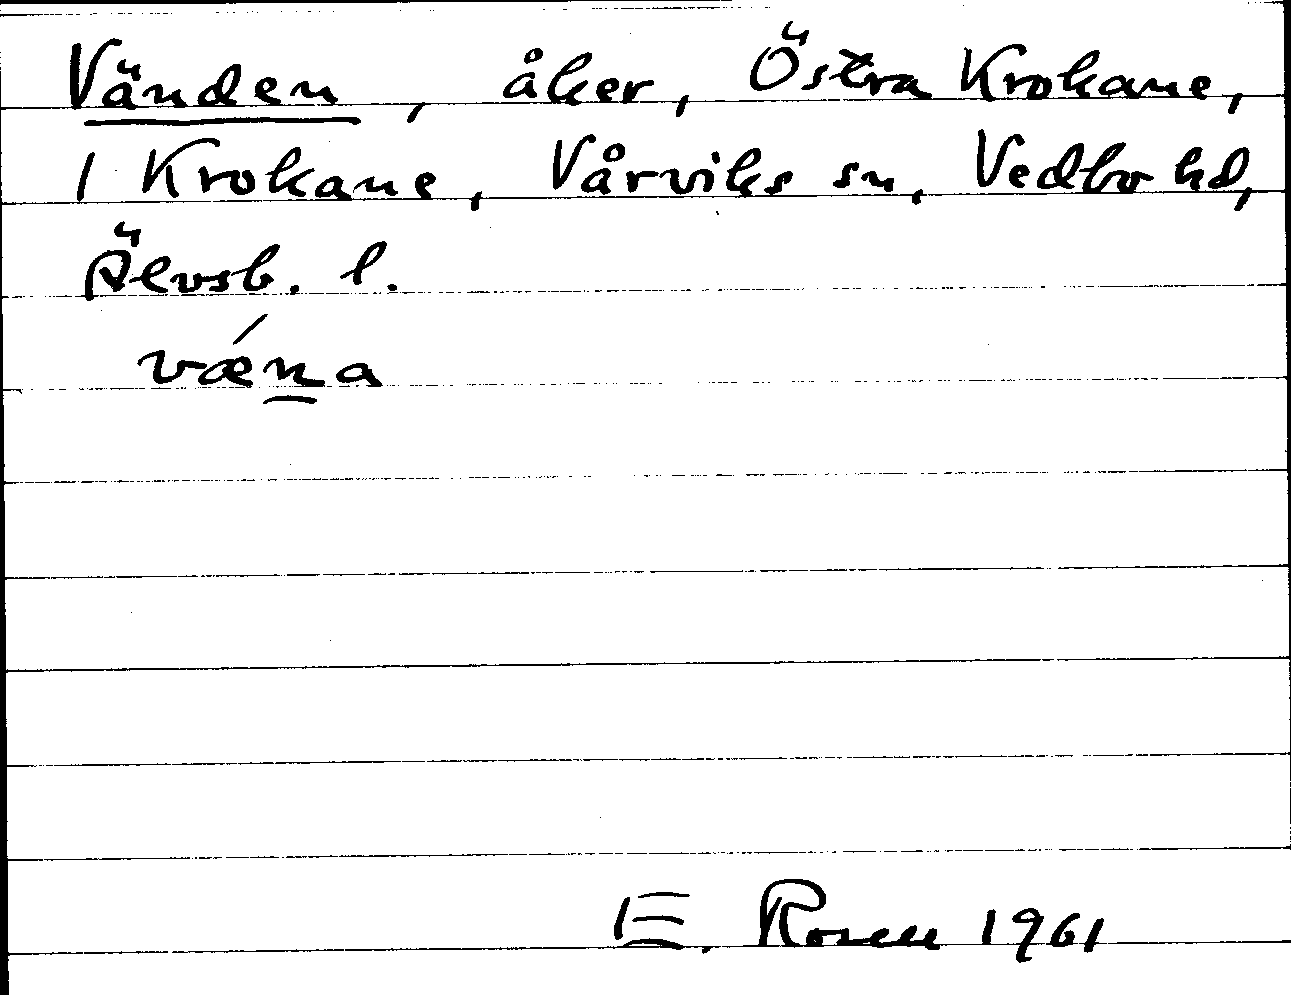 Vänden, åker, Östra Krokane,
1 Krokane, Vårviks sn, Vedbo hd,
Älvsb. l.
vǽn̲a
E. Rosen 1961